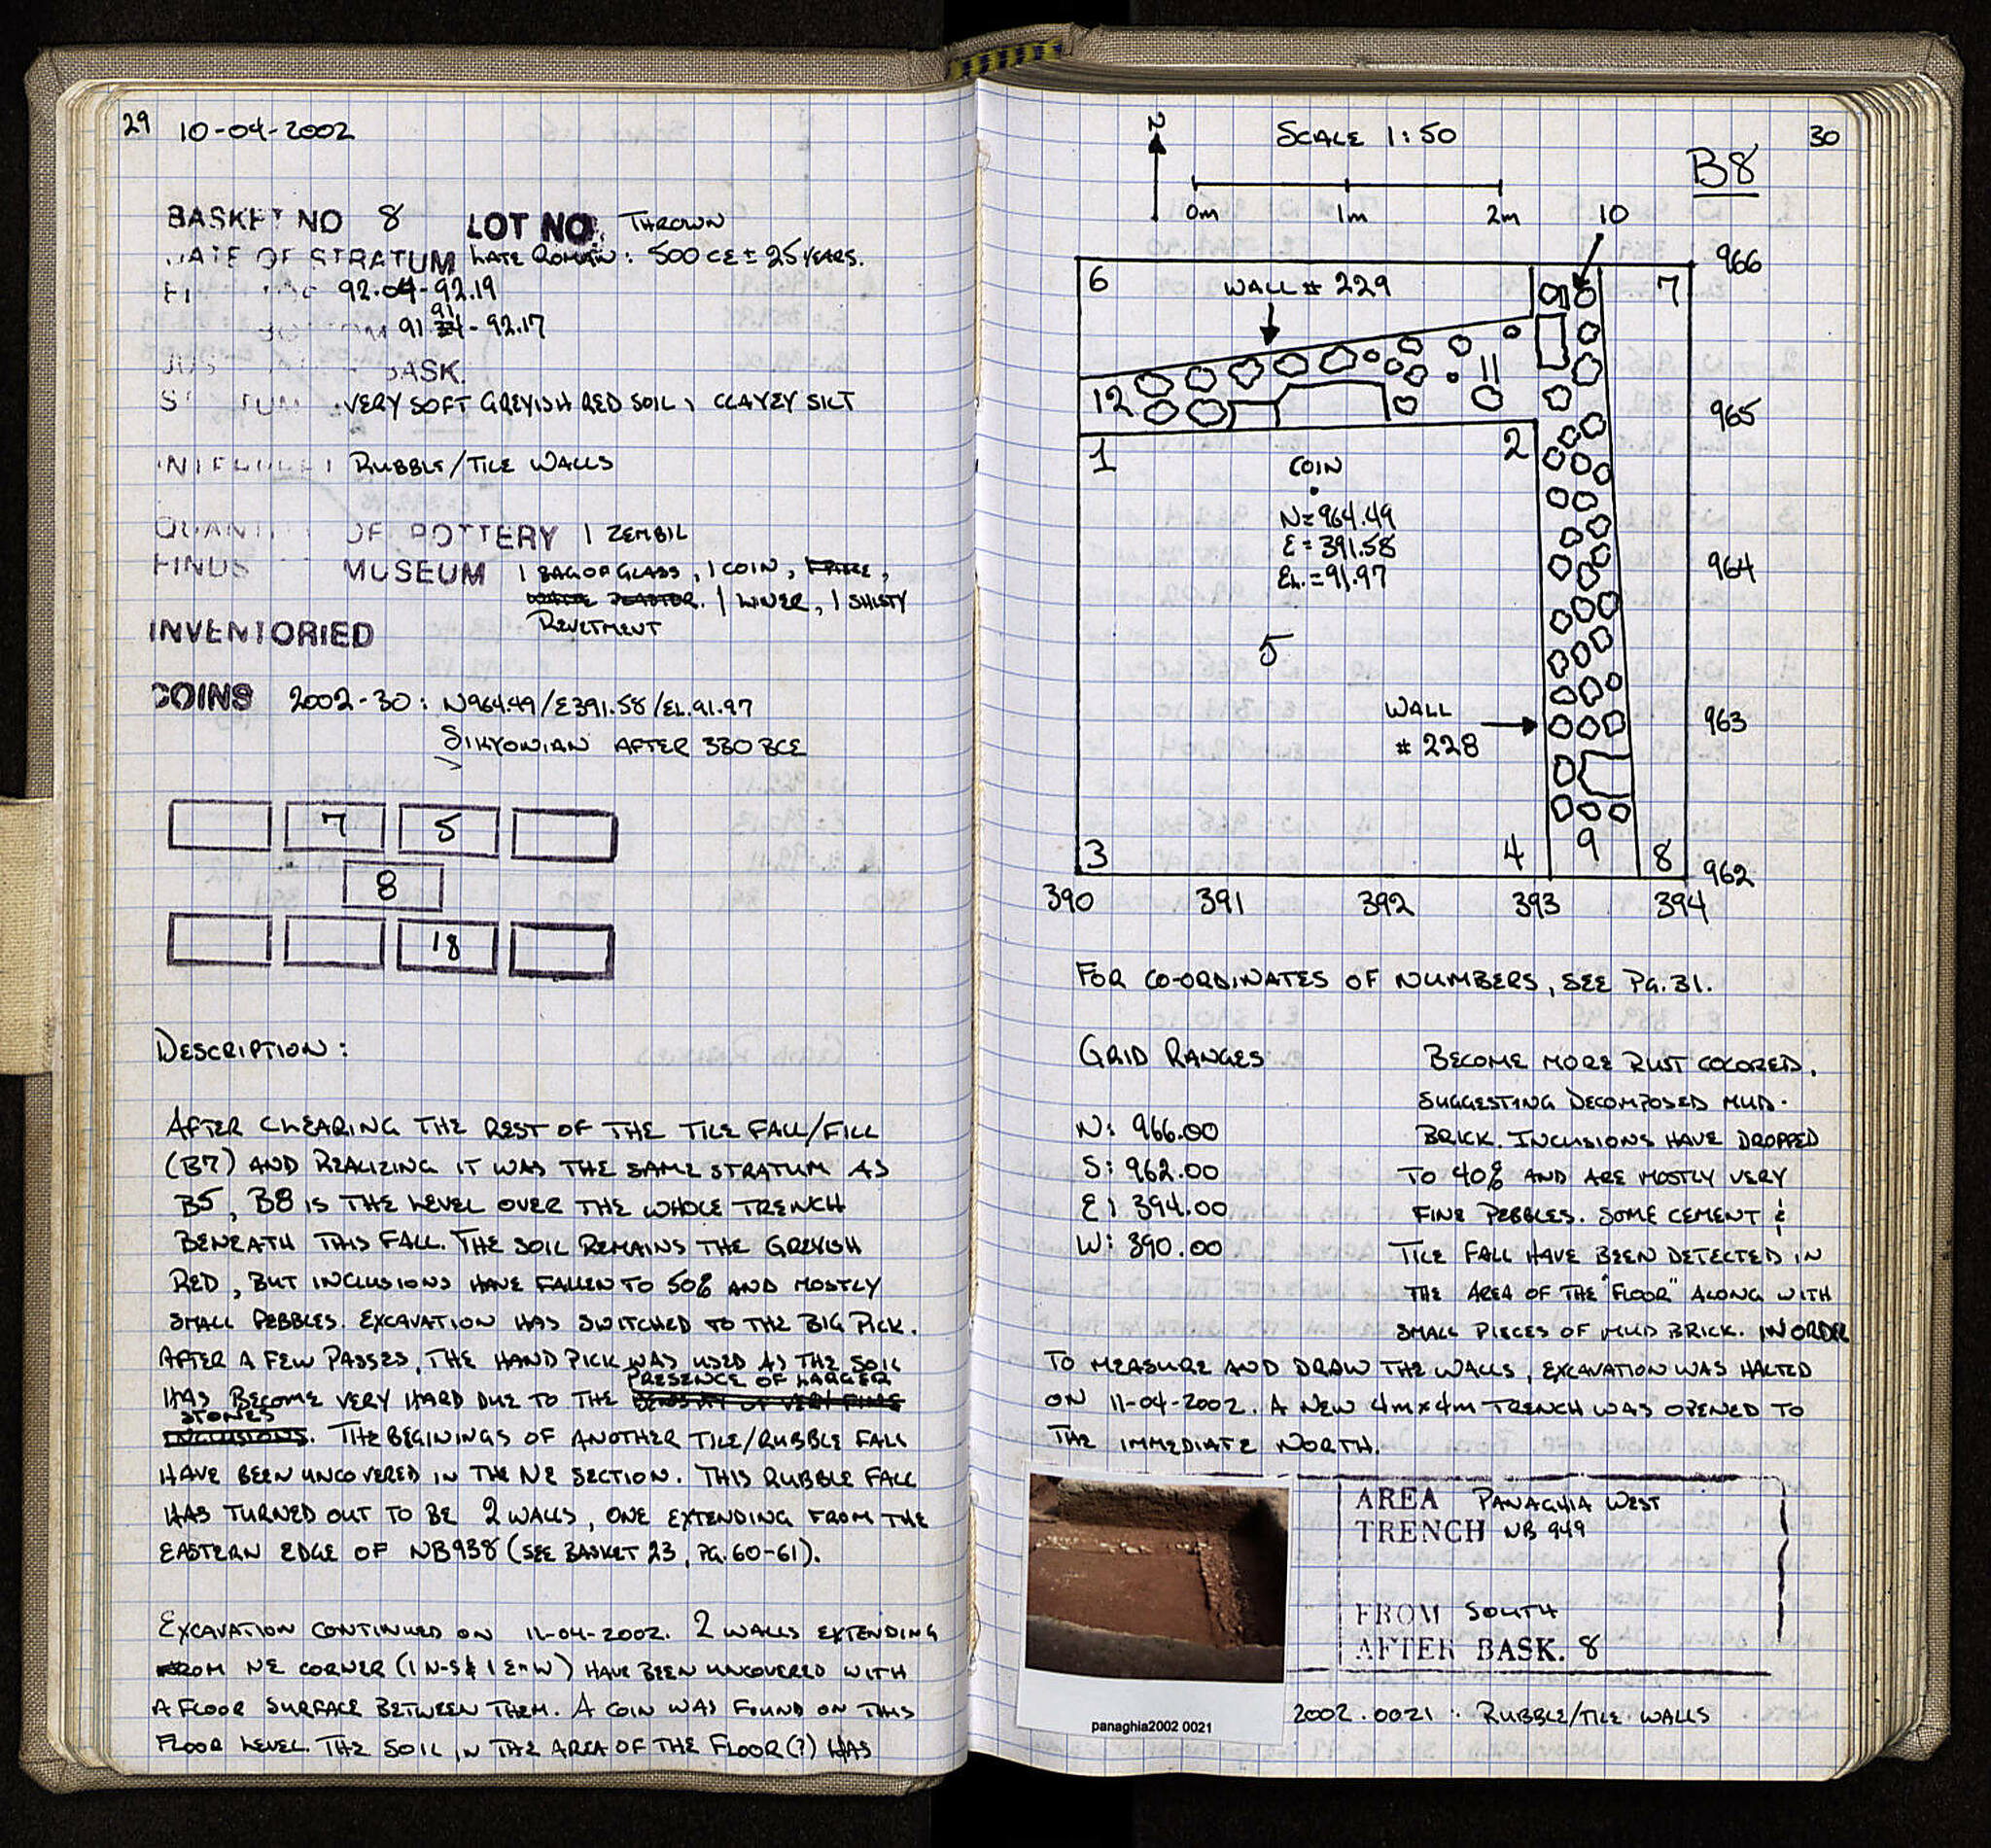 29 10-04-2002
BASKET NO 8 LOT NO. THROWN
DATE OF STRATUM LATE ROMAN: 500 CE ± 25 YEARS.
92.04-92.19
91.91 - 92.17
BASK.
VERY SOFT GREYISH RED SOIL, CLAYEY SILT
RUBBLE/TILE WALLS
QUANTITY OF POTTERY 1 ZEMBIL
FINDS MUSEUM 1 BAG OF GLASS, 1 COIN,
1 LINER, 1 SHISTY
REVETMENT
INVENTORIED
COINS 2002-30: N964.49/E391.58/EL.91.97
SIKYONIAN AFTER 330 BCE
7 5
8
18
DESCRIPTION:
AFTER CLEARING THE REST OF THE TILE FALL/FILL
(B7) AND REALIZING IT WAS THE SAME STRATUM AS
B5, B8 IS THE LEVEL OVER THE WHOLE TRENCH
BENEATH THIS FALL. THE SOIL REMAINS THE GREYISH
RED, BUT INCLUSIONS HAVE FALLEN TO 50% AND MOSTLY
SMALL PEBBLES. EXCAVATION HAS SWITCHED TO THE BIG PICK.
AFTER A FEW PASSES, THE HAND PICK WAS USED AS THE SOIL
HAS BECOME VERY HARD DUE TO THE PRESENCE OF LARGER
STONES. THE BEGININGS OF ANOTHER TILE/RUBBLE FALL
HAVE BEEN UNCOVERED IN THE NE SECTION. THIS RUBBLE FALL
HAS TURNED OUT TO BE 2 WALLS, ONE EXTENDING FROM THE
EASTERN EDGE OF NB938 (SEE BASKET 23, PG. 60-61).
EXCAVATION CONTINUED ON 11-04-2002. 2 WALLS EXTENDING
FROM NE CORNER (1 N-S & 1 E-W) HAVE BEEN UNCOVERED WITH
A FLOOR SURFACE BETWEEN THEM. A COIN WAS FOUND ON THIS
FLOOR LEVEL. THE SOIL IN THE AREA OF THE FLOOR(?) HAS
N SCALE 1:50 30
B8
0m 1m 2m 10
966
6 WALL # 229 7
11
12 965
1 2
COIN
N=964.49
E=391.58
EL.=91.97
964
5
WALL
# 228
963
3 4 9 8
962
390 391 392 393 394
FOR CO-ORDINATES OF NUMBERS, SEE PG. 31.
GRID RANGES
N: 966.00
S: 962.00
E: 394.00
W: 390.00
BECOME MORE RUST COLORED,
SUGGESTING DECOMPOSED MUD-
BRICK. INCLUSIONS HAVE DROPPED
TO 40% AND ARE MOSTLY VERY
FINE PEBBLES. SOME CEMENT &
TILE FALL HAVE BEEN DETECTED IN
THE AREA OF THE "FLOOR" ALONG WITH
SMALL PIECES OF MUD BRICK. IN ORDER
TO MEASURE AND DRAW THE WALLS, EXCAVATION WAS HALTED
ON 11-04-2002. A NEW 4m x 4m TRENCH WAS OPENED TO
THE IMMEDIATE NORTH.
AREA PANAGHIA WEST
TRENCH NB 949
FROM SOUTH
AFTER BASK. 8
panaghia2002 0021
2002.0021: RUBBLE/TILE WALLS